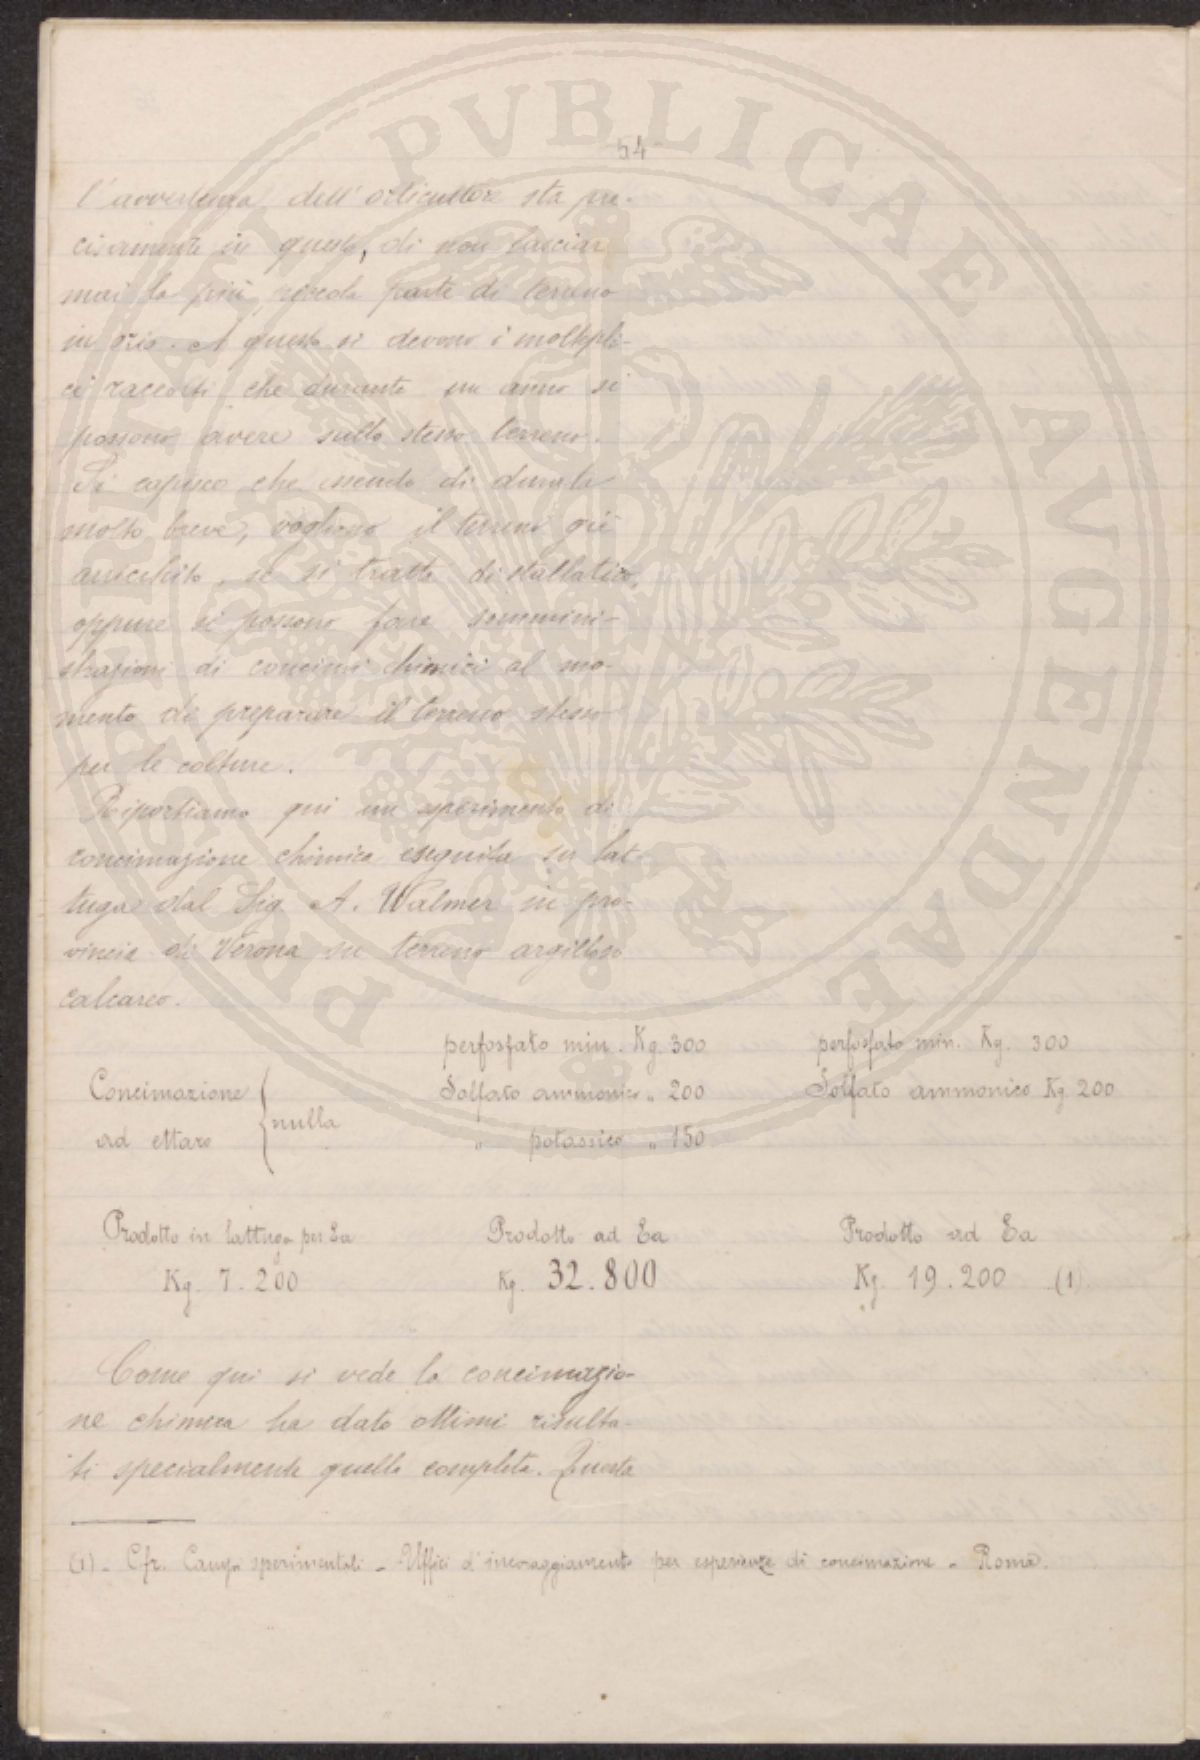 54
l'avvertenza dell'orticultore sta pre-
cisamente in questo, di non lasciar
mai la più piccola parte di terreno
in ozio. A questo si devono i moltepli-
ci raccolti che durante un anno si
possono avere sullo stesso terreno.
Si capisce che essendo di durata
molto breve, vogliono il terreno già
arricchito, se si tratta di stallatico,
oppure si possono fare sommini-
strazioni di concimi chimici al mo-
mento di preparare il terreno stesso
per le colture.
Riportiamo qui un esperimento di
concimazione chimica eseguita su lat-
tuga dal Sig. A. Walmer in pro-
vincia di Verona su terreno argilloso
calcareo.
perfosfato min. Kg. 300 perfosfato min. Kg. 300
Concimazione Solfato ammonico „ 200 Solfato ammonico Kg. 200
nulla
ad ettaro „ potassico „ 150
Prodotto in lattuga per Ea Prodotto ad Ea Prodotto ad Ea
Kg. 7.200 Kg. 32.800 Kg. 19.200 (1).
Come qui si vede la concimazio-
ne chimica ha dato ottimi risulta-
ti specialmente quella completa. Questa
(1)- Cfr. Campi sperimentali - Uffici d'incoraggiamento per esperienze di concimazione - Roma.
PUBLICAE AVGENDAE